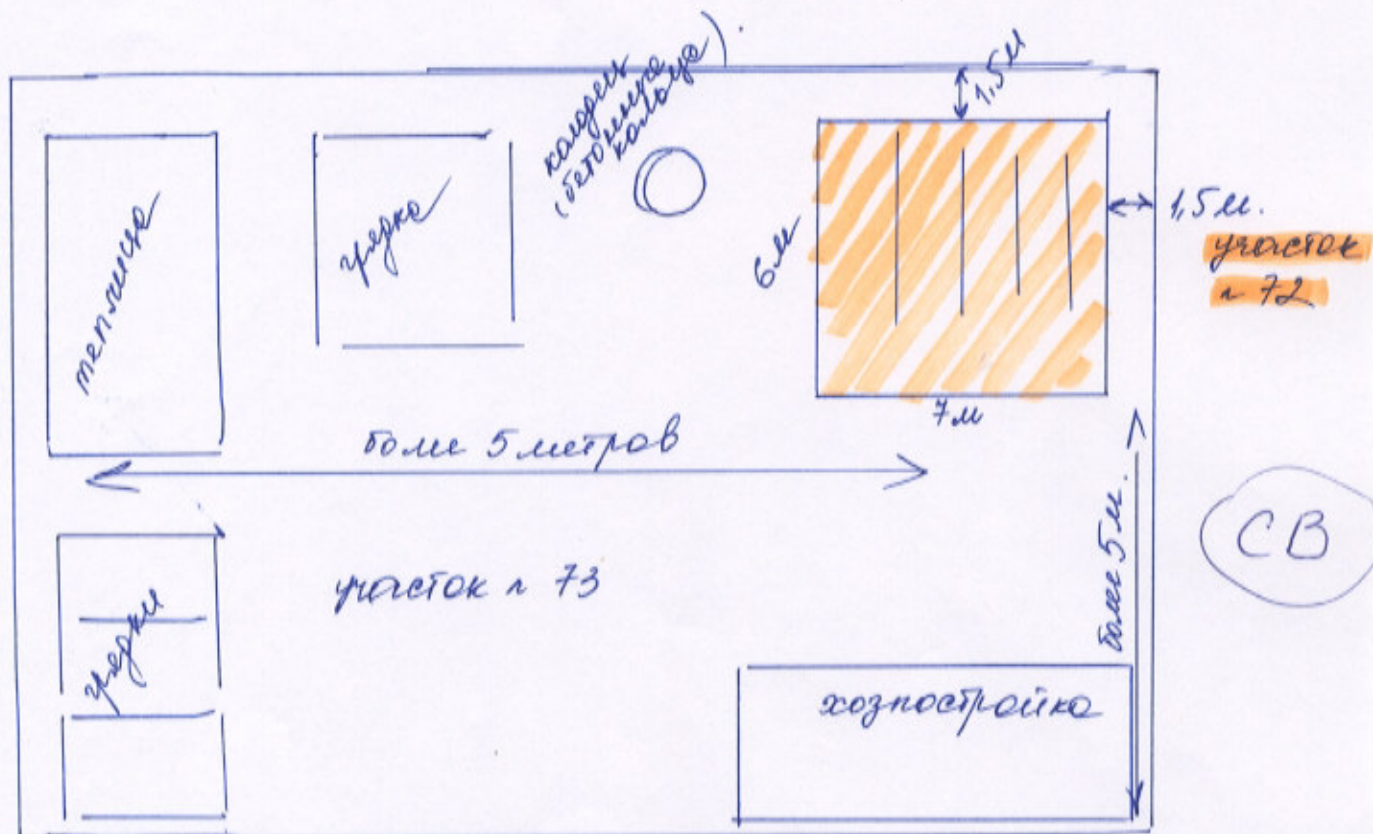 колодец
(бетонные
кольца).
1,5м
теплица
грядка
6м
1,5м.
участок
n 72
7м
боле 5 метров
СВ
боле 5м.
участок n 73
грядки
хозпостройка